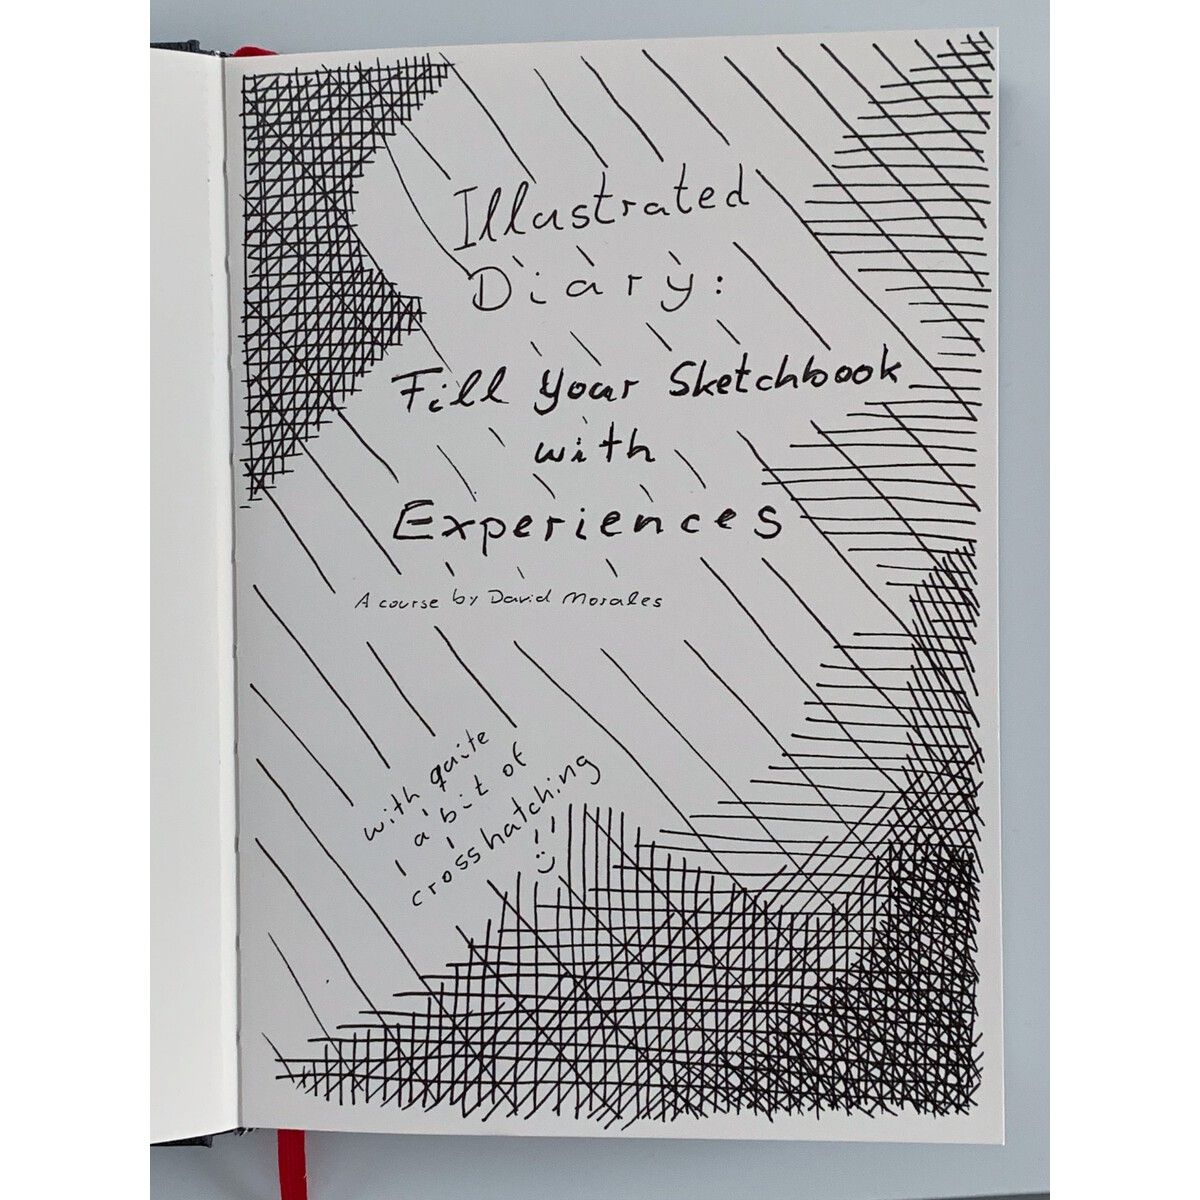 Illustrated
Diary:
Fill Your Sketchbook
with
Experiences
A course by David Morales
with quite
a bit of
crosshatching